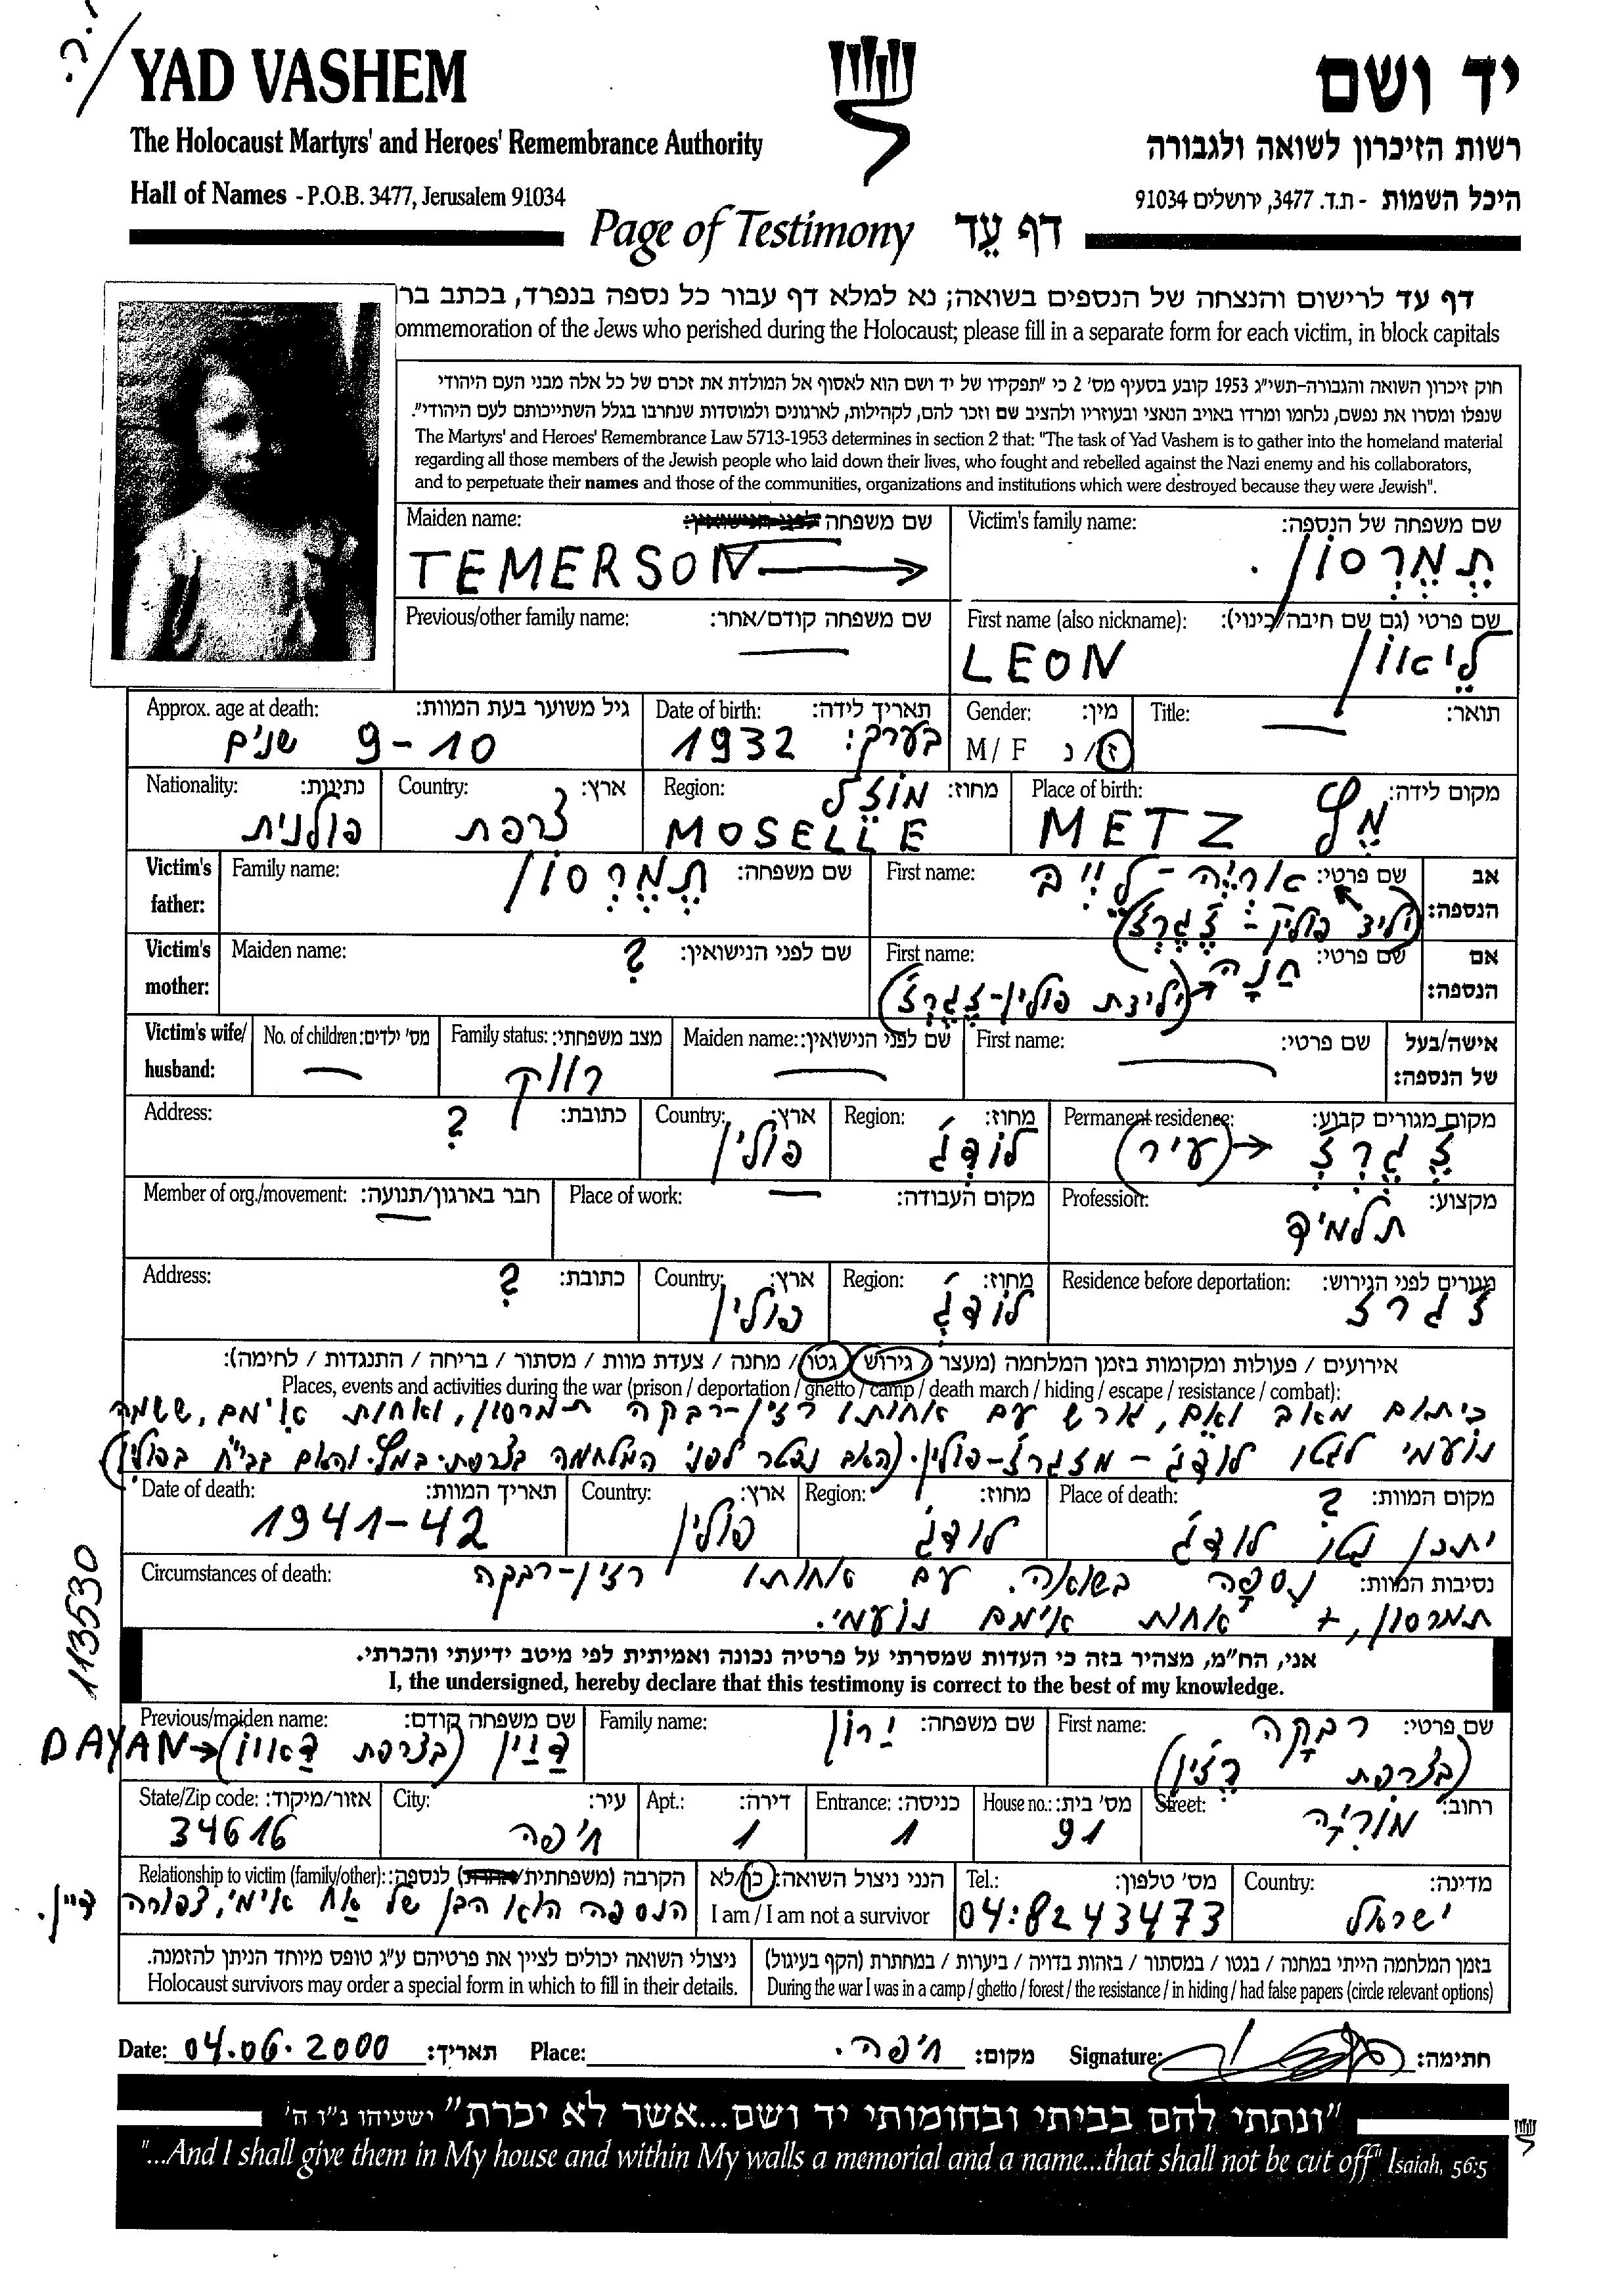 י.ר.
YAD VASHEM
יד ושם
The Holocaust Martyrs' and Heroes' Remembrance Authority
רשות הזיכרון לשואה ולגבורה
Hall of Names - P.O.B. 3477, Jerusalem 91034
היכל השמות - ת.ד. 3477, ירושלים 91034
Page of Testimony דף עֵד
דף עד לרישום והנצחה של הנספים בשואה; נא למלא דף עבור כל נספה בנפרד, בכתב בר
ommemoration of the Jews who perished during the Holocaust; please fill in a separate form for each victim, in block capitals
חוק זיכרון השואה והגבורה-תשי"ג 1953 קובע בסעיף מס' 2 כי "תפקידו של יד ושם הוא לאסוף אל המולדת את זכרם של כל אלה מבני העם היהודי
שנפלו ומסרו את נפשם, נלחמו ומרדו באויב הנאצי ובעוזריו ולהציב שם וזכר להם, לקהילות, לארגונים ולמוסדות שנחרבו בגלל השתייכותם לעם היהודי".
The Martyrs' and Heroes' Remembrance Law 5713-1953 determines in section 2 that: "The task of Yad Vashem is to gather into the homeland material
regarding all those members of the Jewish people who laid down their lives, who fought and rebelled against the Nazi enemy and his collaborators,
and to perpetuate their names and those of the communities, organizations and institutions which were destroyed because they were Jewish".
Victim's family name: שם משפחה של הנספה:
תֶמֶרְסוֹן
Maiden name: שם משפחה לפני הנישואין:
TEMERSON →
First name (also nickname): שם פרטי (גם שם חיבה/כינוי):
LEON לֵיאוֹן
Previous/other family name: שם משפחה קודם/אחר:
—
Title: תואר:
—
Gender: מין:
M/ F ז/ נ
Date of birth: תאריך לידה:
בערך: 1932
Approx. age at death: גיל משוער בעת המוות:
9-10 שנים
Place of birth: מקום לידה:
METZ מֶץ
Region: מחוז:
מוֹזֶל
MOSELLE
Country: ארץ:
צרפת
Nationality: נתינות:
פולנית
Victim's father: אב הנספה:
First name: שם פרטי:
אריֵה-לֵייב
(יליד פולין - זְגֶרְז)
Family name: שם משפחה:
תֶמֶרְסוֹן
Victim's mother: אם הנספה:
First name: שם פרטי:
חַנָה
(ילידת פולין-זְגֶרְז)
Maiden name: שם לפני הנישואין:
?
Victim's wife/ husband: אישה/בעל של הנספה:
First name: שם פרטי:
—
Maiden name: שם לפני הנישואין:
—
Family status: מצב משפחתי:
רווק
No. of children: מס' ילדים:
—
Permanent residence: מקום מגורים קבוע:
זְגֶרְז ← (עיר)
Region: מחוז:
לודג'
Country: ארץ:
פולין
Address: כתובת:
?
Profession: מקצוע:
תלמיד
Place of work: מקום העבודה:
—
Member of org./movement: חבר בארגון/תנועה:
—
Residence before deportation: מגורים לפני הגירוש:
זגרז
Region: מחוז:
לודג'
Country: ארץ:
פולין
Address: כתובת:
?
אירועים / פעולות ומקומות בזמן המלחמה (מעצר / גירוש / גטו / מחנה / צעדת מוות / מסתור / בריחה / התנגדות / לחימה):
Places, events and activities during the war (prison / deportation / ghetto / camp / death march / hiding / escape / resistance / combat):
כיתום מאב ואם, גורש עם אחותו רזין-רבקה תמרסון, ואחות אימם, ששמה
נועמי לגטו לודג' - מזגרז-פולין. (האב נפטר לפני המלחמה בצרפת.במץ. והאם בבי"ח בפולין)
Place of death: מקום המוות:
יתכן גטו לודג' ?
Region: מחוז:
לודג'
Country: ארץ:
פולין
Date of death: תאריך המוות:
1941-42
Circumstances of death: נסיבות המוות:
נִסְפָּה בשואה. עם אחותו רזין-רבקה
תמרסון, + אחות אימם נועמי.
113530
אני, הח"מ, מצהיר בזה כי העדות שמסרתי על פרטיה נכונה ואמיתית לפי מיטב ידיעתי והכרתי.
I, the undersigned, hereby declare that this testimony is correct to the best of my knowledge.
First name: שם פרטי:
רבקה
(בצרפת רֶזִין)
Family name: שם משפחה:
ירון
Previous/maiden name: שם משפחה קודם:
דיין (בצרפת ) ← DAYAN
Street: רחוב:
מוריה
House no.: מס' בית:
91
Entrance: כניסה:
1
Apt.: דירה:
1
City: עיר:
חיפה
State/Zip code: אזור/מיקוד:
34616
Country: מדינה:
ישראל
Tel.: מס' טלפון:
04:8243473
הנני ניצול השואה: כן/לא
I am / I am not a survivor
Relationship to victim (family/other): הקרבה (משפחתית/אחרת) לנספה:
הנספה הוא הבן של אח אימי, צפורה דיין.
בזמן המלחמה הייתי במחנה / בגטו / במסתור / בזהות בדויה / ביערות / במחתרת (הקף בעיגול)
During the war I was in a camp / ghetto / forest / the resistance / in hiding / had false papers (circle relevant options)
ניצולי השואה יכולים לציין את פרטיהם ע"ג טופס מיוחד הניתן להזמנה.
Holocaust survivors may order a special form in which to fill in their details.
Date: 04.06.2000 תאריך: Place: חיפה. מקום: Signature: חתימה:
"ונתתי להם בביתי ובחומותי יד ושם...אשר לא יכרת" ישעיהו נ"ו ה'
"...And I shall give them in My house and within My walls a memorial and a name...that shall not be cut off" Isaiah, 56:5